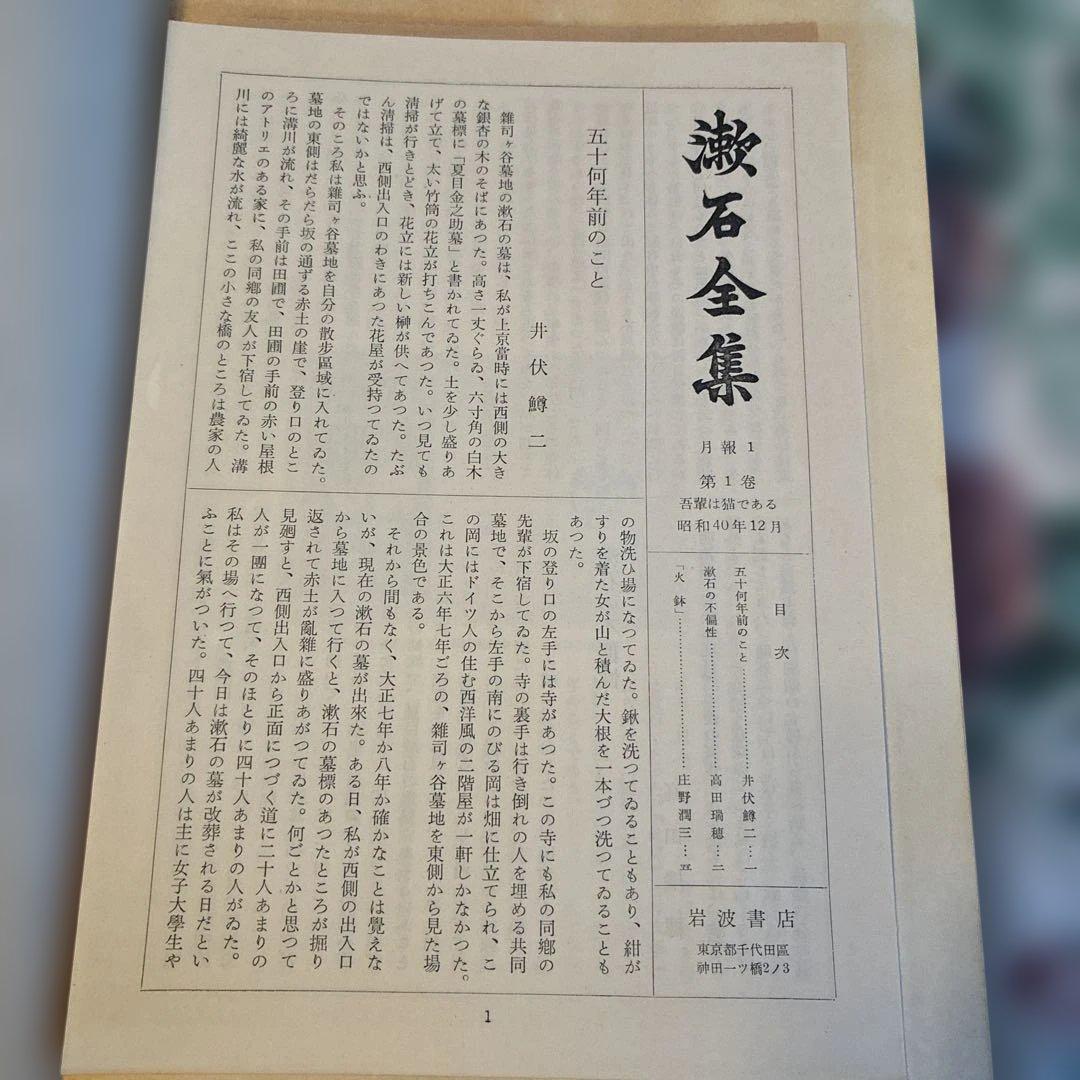 漱石全集
月報1
第1卷
吾輩は猫である
昭和40年12月
目次
五十何年前のこと……………………井伏鱒二…一
漱石の不偏性……………………高田瑞穂…二
「火鉢」……………………庄野潤三…五
岩波書店
東京都千代田區
神田一ツ橋2ノ3
五十何年前のこと
井伏鱒二
雜司ヶ谷墓地の漱石の墓は、私が上京當時には西側の大き
な銀杏の木のそばにあつた。高さ一丈ぐらゐ、六寸角の白木
の墓標に「夏目金之助墓」と書かれてゐた。土を少し盛りあ
げて立て、太い竹筒の花立が打ちこんであつた。いつ見ても
清掃が行きとどき、花立には新しい榊が供へてあつた。たぶ
ん清掃は、西側出入口のわきにあつた花屋が受持つてゐたの
ではないかと思ふ。
そのころ私は雜司ヶ谷墓地を自分の散步區域に入れてゐた。
墓地の東側はだらだら坂の通ずる赤土の崖で、登り口のとこ
ろに溝川が流れ、その手前は田圃で、田圃の手前の赤い屋根
のアトリエのある家に、私の同鄕の友人が下宿してゐた。溝
川には綺麗な水が流れ、ここの小さな橋のところは農家の人
の物洗ひ場になつてゐた。鍬を洗つてゐることもあり、紺が
すりを着た女が山と積んだ大根を一本づつ洗つてゐることも
あつた。
坂の登り口の左手には寺があつた。この寺にも私の同鄕の
先輩が下宿してゐた。寺の裏手は行き倒れの人を埋める共同
墓地で、そこから左手の南にのびる岡は畑に仕立てられ、こ
の岡にはドイツ人の住む西洋風の二階屋が一軒しかなかつた。
これは大正六年七年ごろの、雜司ヶ谷墓地を東側から見た場
合の景色である。
それから間もなく、大正七年か八年か確かなことは覺えな
いが、現在の漱石の墓が出來た。ある日、私が西側の出入口
から墓地に入つて行くと、漱石の墓標のあつたところが掘り
返されて赤土が亂雜に盛りあがつてゐた。何ごとかと思つて
見廻すと、西側出入口から正面につづく道に二十人あまりの
人が一團になつて、そのほとりに四十人あまりの人がゐた。
私はその場へ行つて、今日は漱石の墓が改葬される日だとい
ふことに氣がついた。四十人あまりの人は主に女子大學生や
1